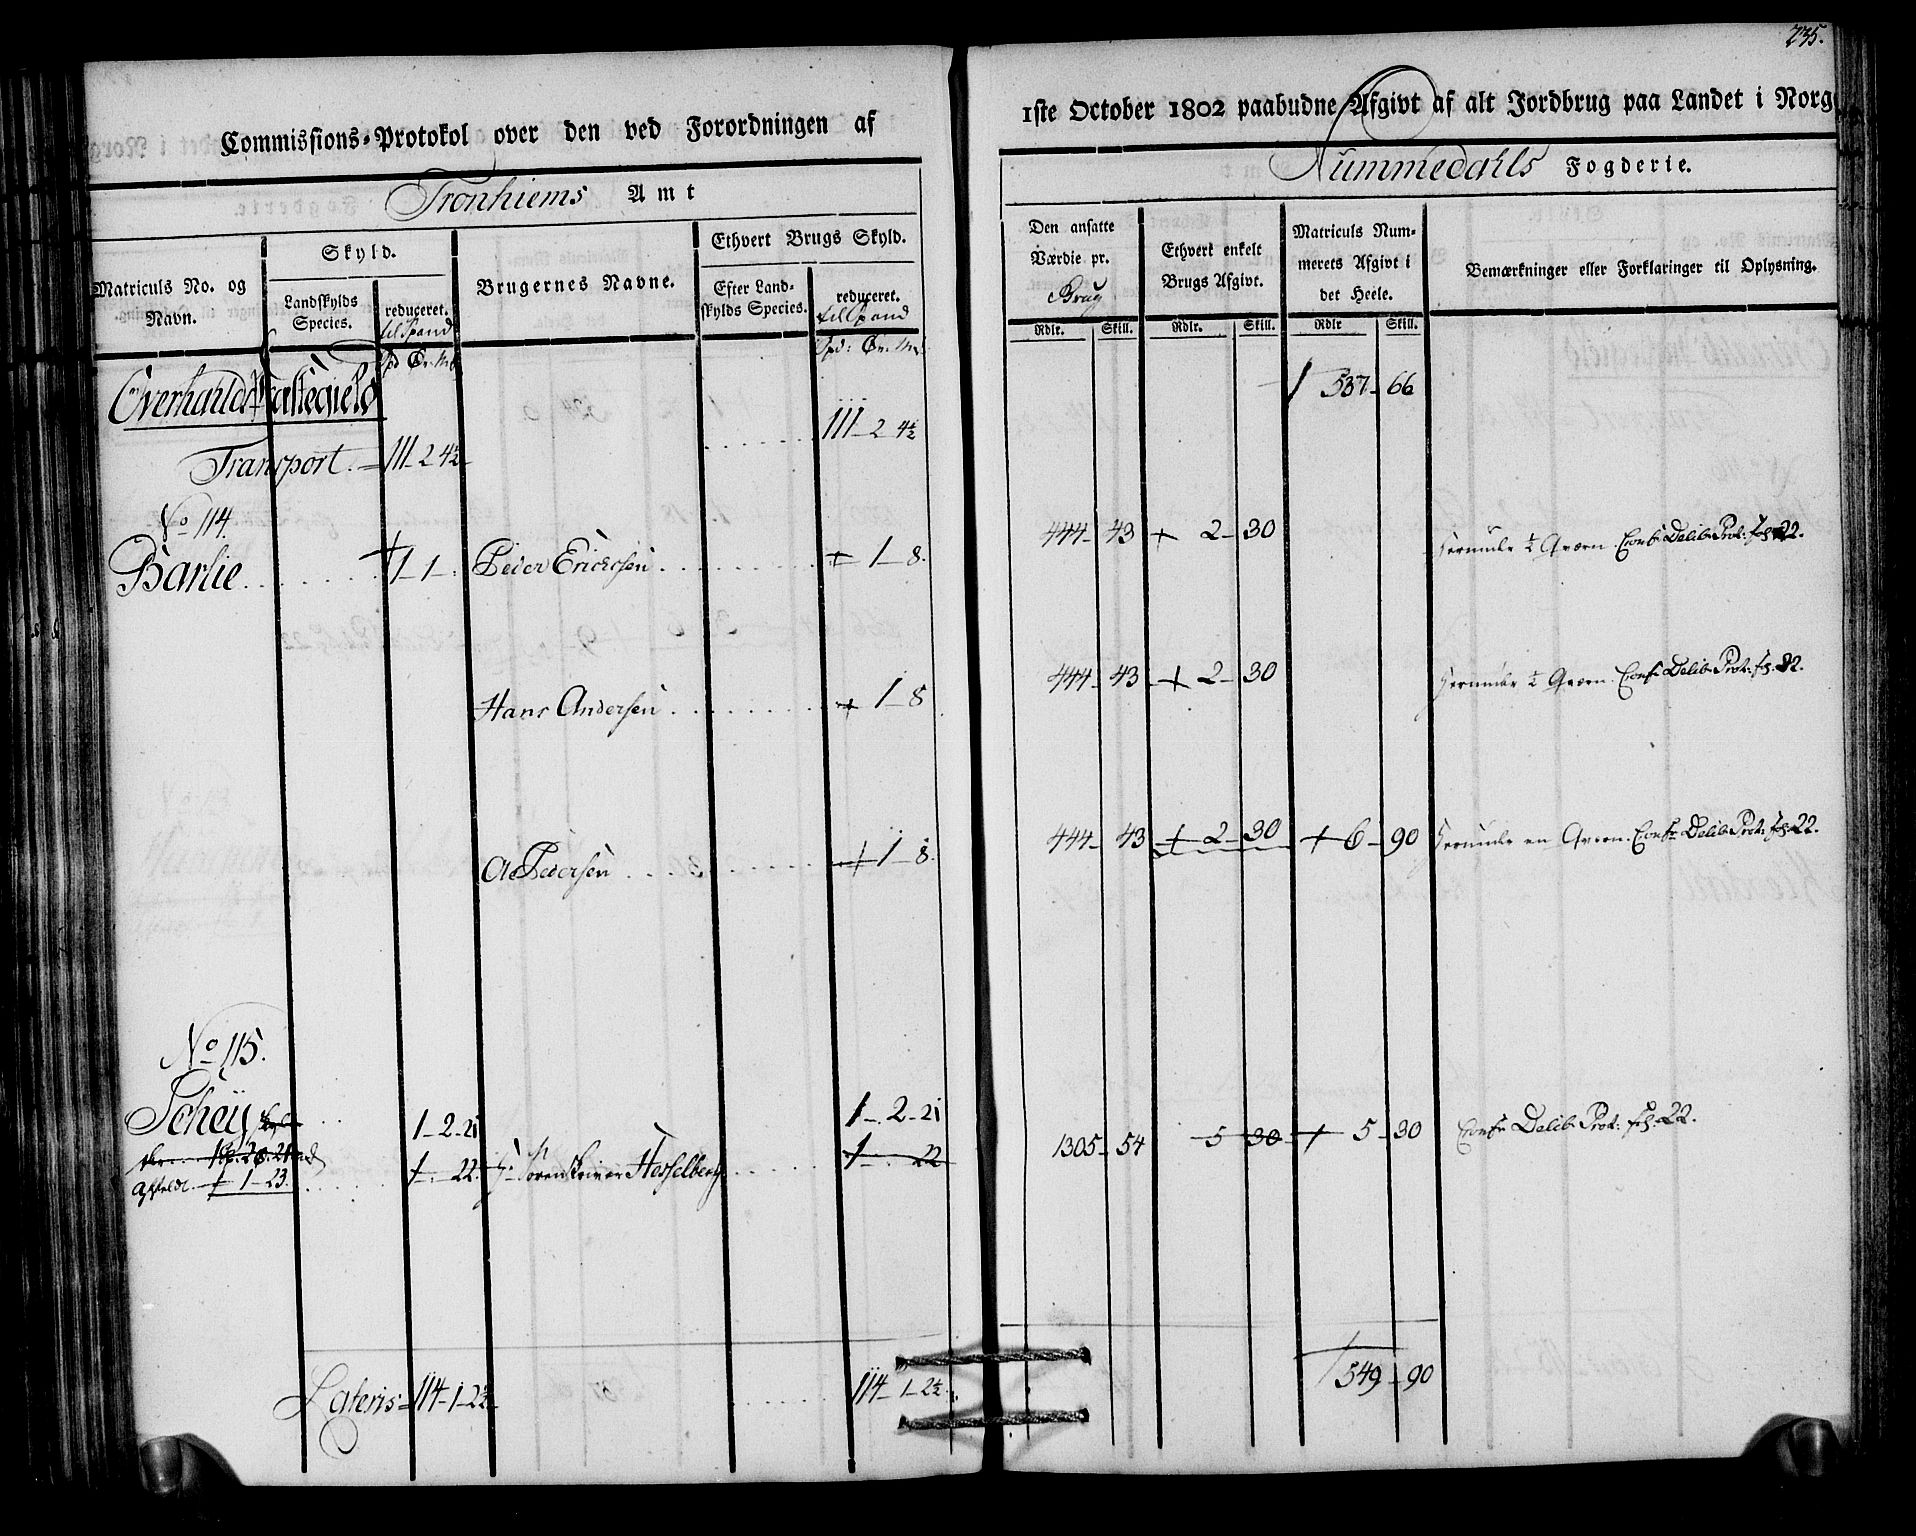 235.
Commissions-Protokol over den ved Forordningen af 1ste October 1802 paabudne Afgivt af alt Jordbrug paa Landet i Norg
Tronhiems Amt
Nummedahls Fogderie.
Matriculs No. og Navn.
Skyld.
Landskylds Species.
reduceret. til Spand
Brugernes Navne.
Ethvert Brugs Skyld.
Efter Landskylds Species.
reduceret. til Spand
Den ansatte Værdie pr. Brug
Ethvert enkelt Brugs Afgivt.
Matriculs Nummerets Afgivt i det Heele.
Bemærkninger eller Forklaringer til Oplysning.
Rdlr. Skill. Rdlr. Skill. Rdlr Skill.
Overhalds Præstegield
537 - 66
Transport. 111 - 2 4½ 111 - 2 4½
No 114.
Barlie 1 - 1 - Peder Erichsen + 1 - 8. 444 - 43 + 2 - 30 herunder ½ Qværn. Conf: Delib: Prot: fol. 22.
Hans Andersen + 1 - 8 444 - 43 + 2 - 30 herunder ½ Qværn. Conf: Delib: Prot: fol. 22.
Ole Pedersen + 1 - 8. 444 - 43 + 2 - 30 + 6 - 90 herunder en Qværn. Conf: Delib: Prot: fol. 22.
No 115.
Scheÿ 1 - 2 - 21 1 - 2 - 21
1 - 23. 22. Hr Sorenskriver Hesselberg 22 1305 - 54 5 30 + 5 - 30 Conf: Delib: Prot: fol. 22.
Lateris 114 - 1 - 2½ 114 - 1 - 2½ 549 - 90